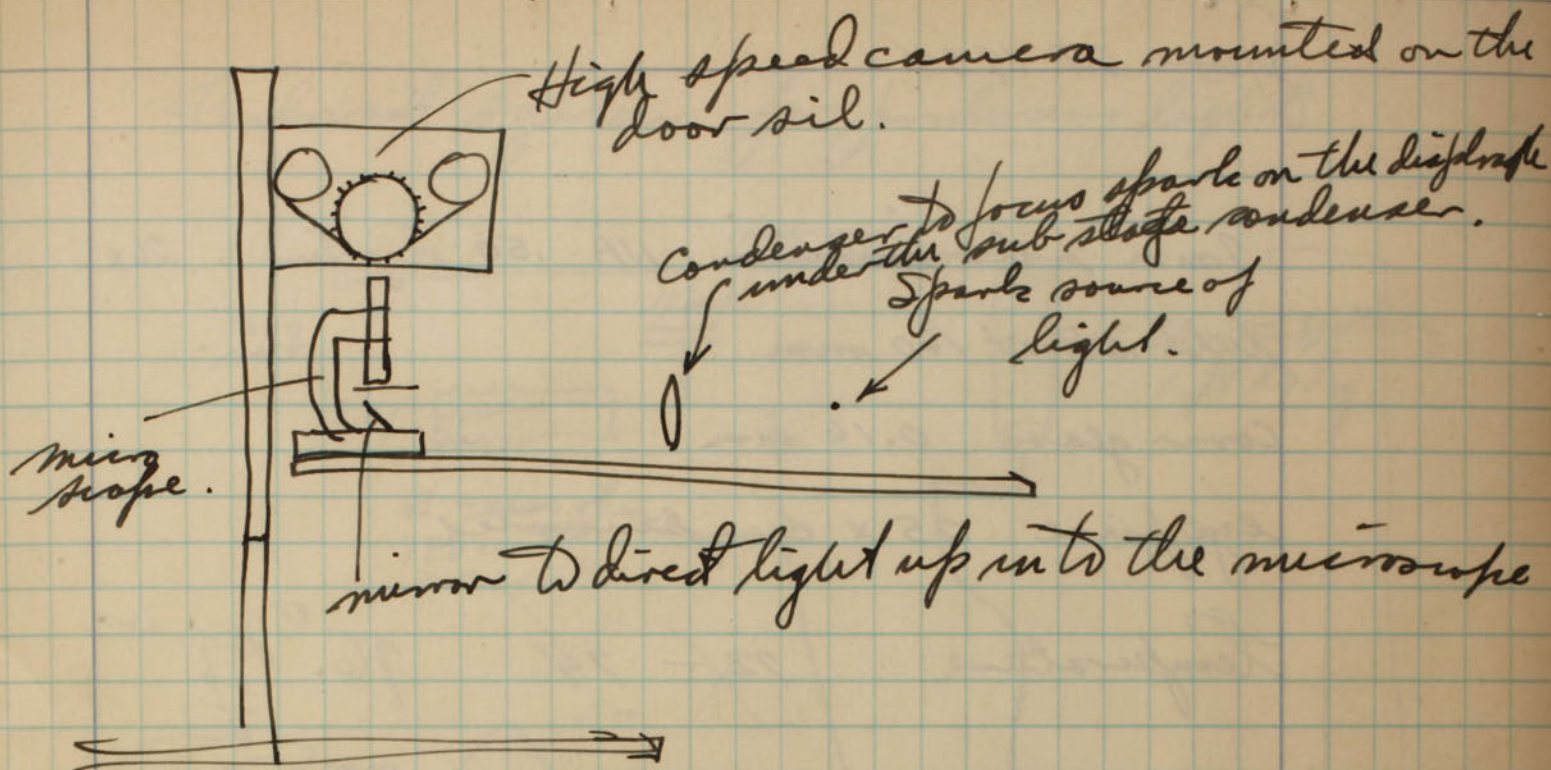 High speed camera mounted on the
door sil.
Condenser to focus spark on the diaphragm
under the sub stage condenser.
Spark source of
light.
micro
scope.
mirror to direct light up into the microscope